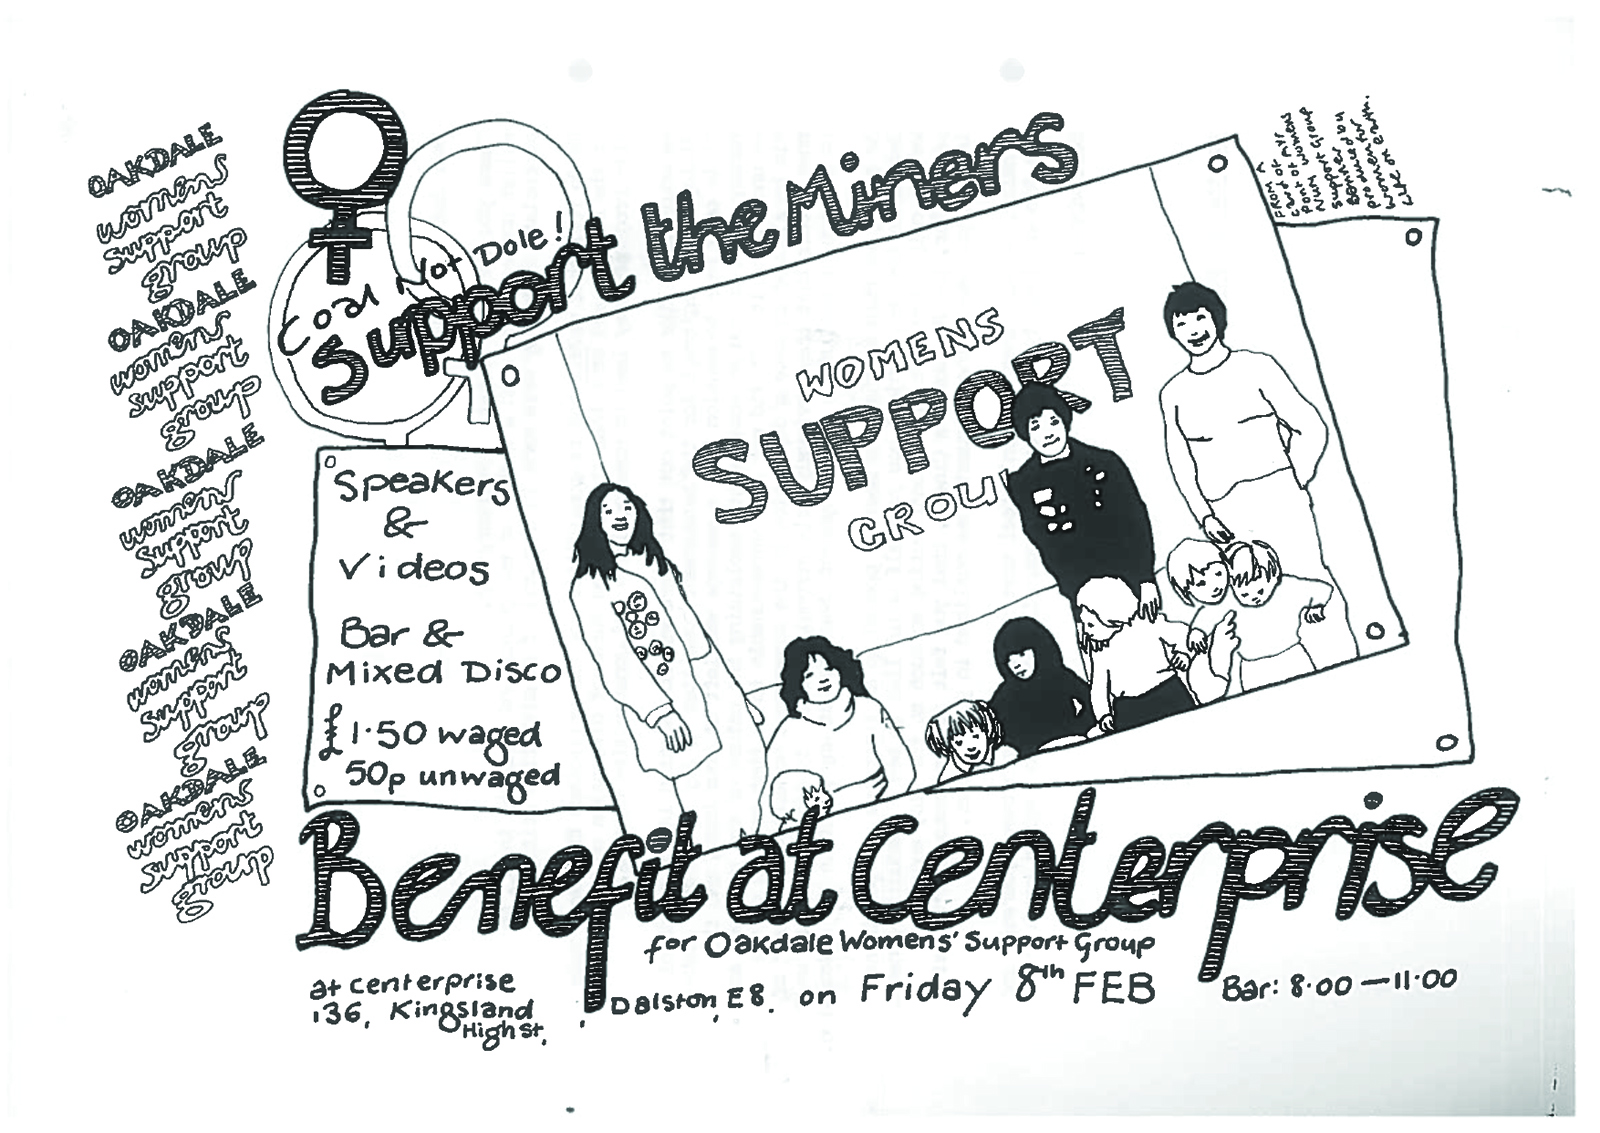 OAKDALE
womens
support
group
OAKDALE
womens
support
group
OAKDALE
womens
support
group
OAKDALE
womens
support
group
OAKDALE
womens
support
group
Coal Not Dole!
Support the Miners
WOMENS
SUPPORT
GROU
Speakers
&
Videos
Bar &
Mixed Disco
£1·50 waged
50p unwaged
Benefit at Centerprise
for Oakdale Womens' Support Group
at centerprise
136, Kingsland
High St,
Dalston, E8. on Friday 8th FEB
Bar: 8·00 — 11·00